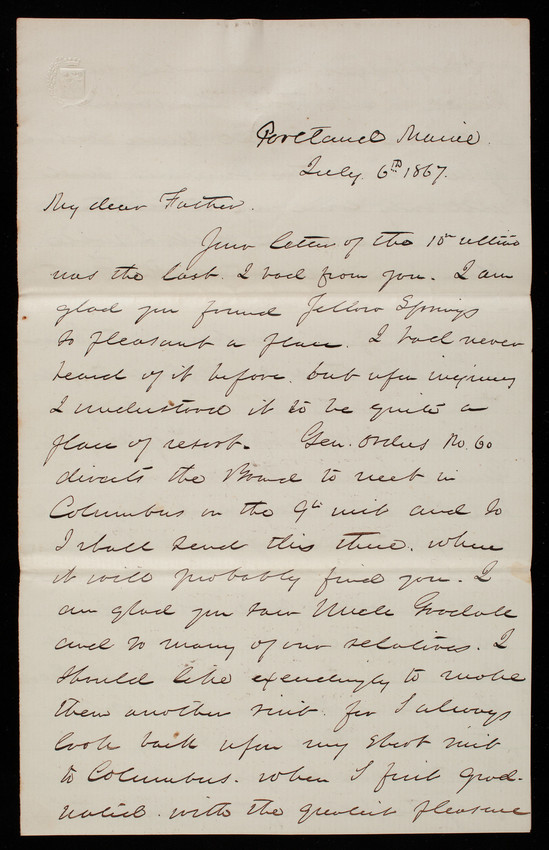 Portland Maine.
July 6th 1867.
My dear Father.
Your letter of the 15th ultimo
was the last I had from you. I am
glad you found Yellow Springs
so pleasant a place. I had never
heard of it before. but upon inquiry
I understood it to be quite a
place of resort. Gen. Orders No. 60
directs the Board to meet in
Columbus on the 9th inst and so
I shall send this there. where
it will probably find you. I
am glad you saw Uncle Goodale
and so many of our relatives. I
should like exceedingly to make
them another visit. for I always
look back upon my short visit
to Columbus. when I first grad-
uated. with the greatest pleasure